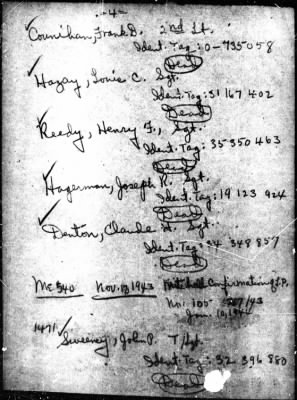 -4-
Counihan, Frank D. 2nd Lt.
Ident. Tag: O-735058
Dead
Hazay, Louis C. Sgt.
Ident. Tag: 31 167 402
Dead
Reedy, Henry F., Sgt.
Ident. Tag: 35 350 463
Dead
Hagerman, Joseph R. Sgt.
Ident. Tag: 19 123 924
Dead
Denton, Claude H. Sgt.
Ident. Tag: 34 348 857
Dead
Nov. 10, 1943 Confirmation of
No. 105
Jan. 10, 1944
1471 Sweeney, John P. T/Sgt.
Ident. Tag: 32 396 880
Dead